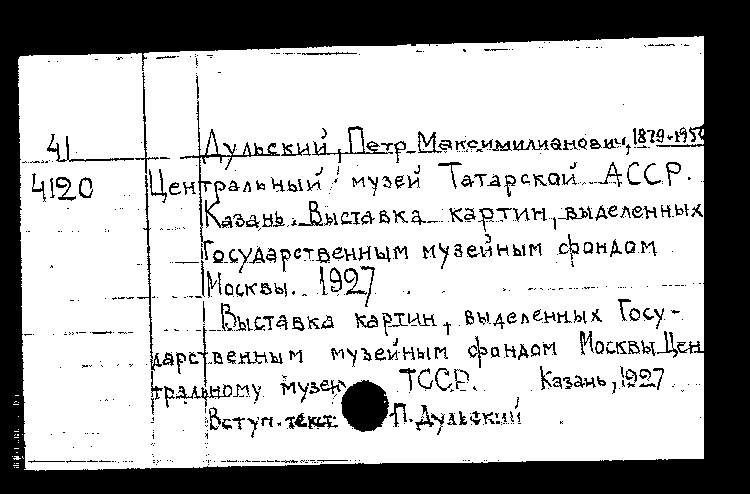 41 Дульский, Петр Максимилианович, 1879-1956
4120 Центральный музей Татарской АССР.
Казань. Выставка картин, выделенных
Государственным музейным фондом
Москвы. 1927
Выставка картин, выделенных Госу-
дарственным музейным фондом Москвы Цен
тральному музею ТССР. Казань, 1927
Вступ. текст П. Дульский